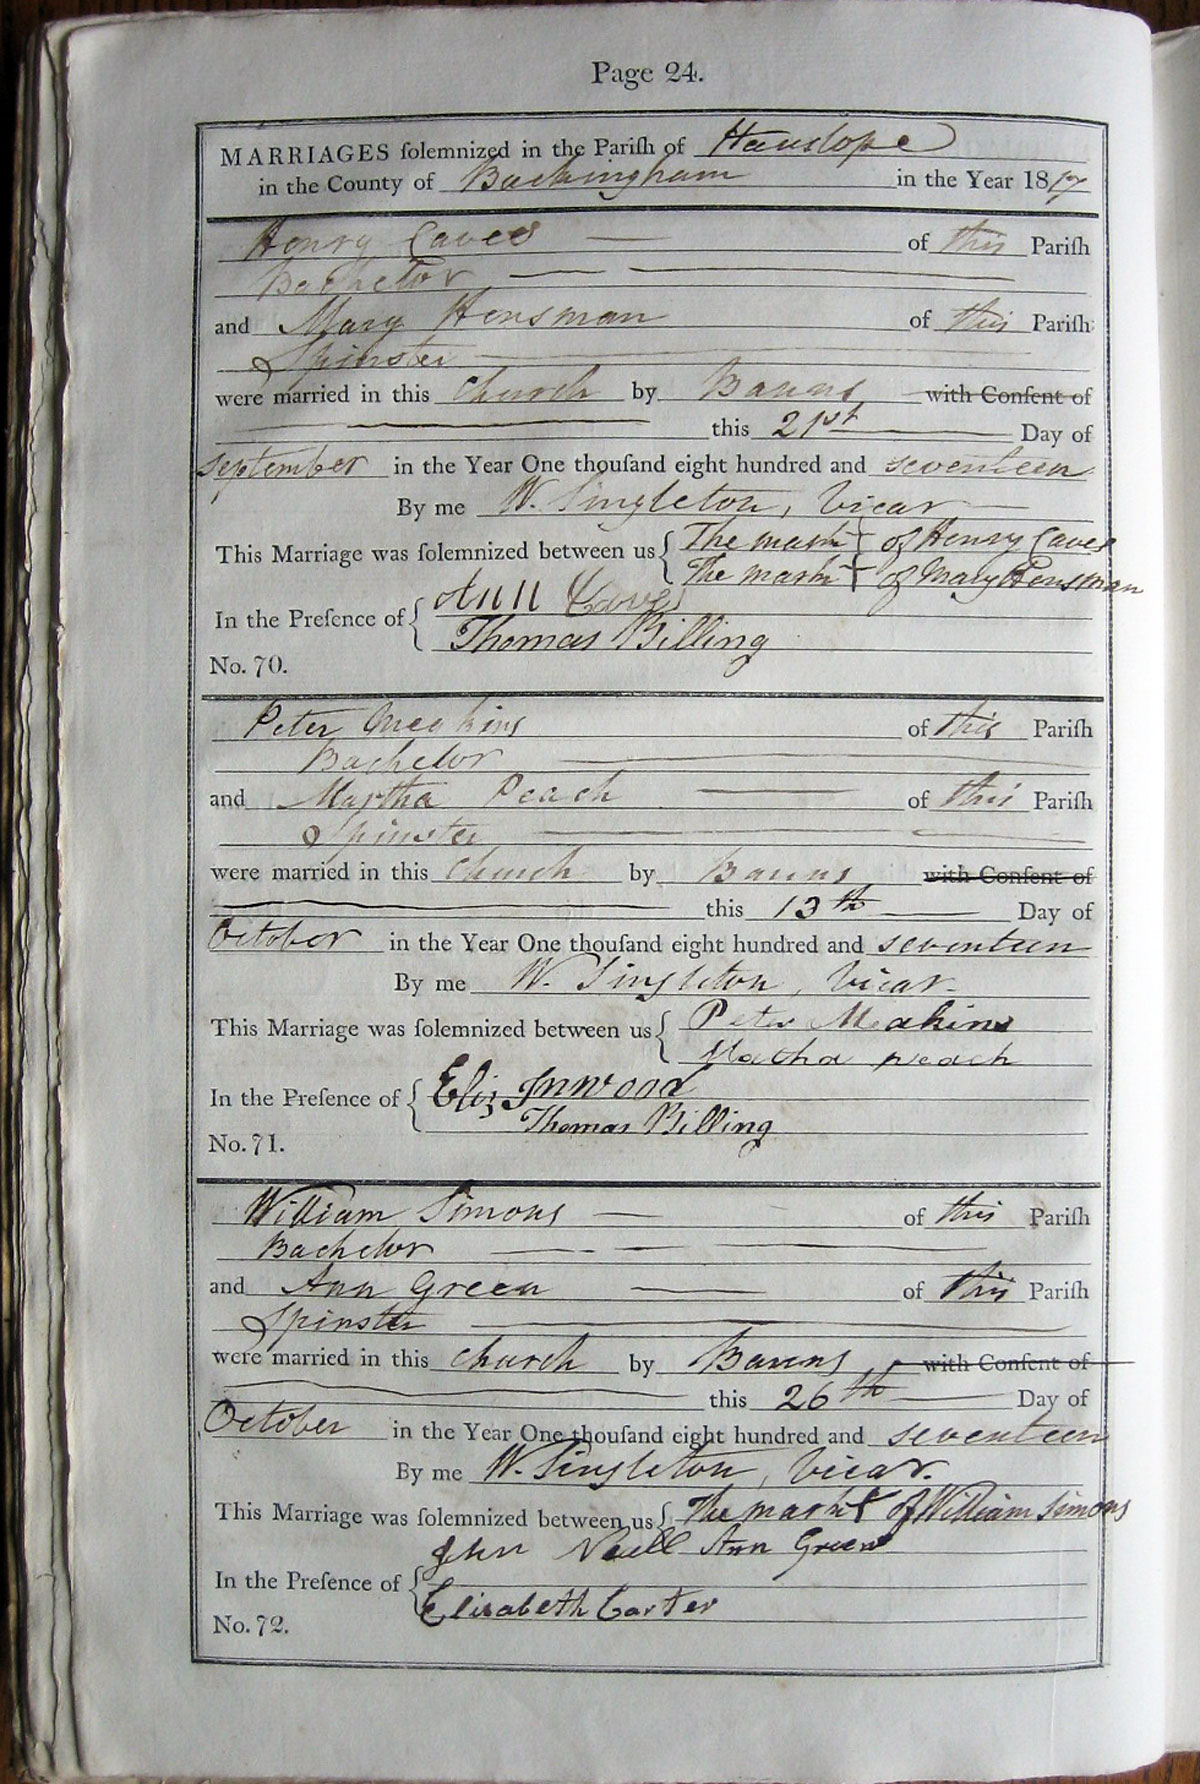 Page 24.
MARRIAGES ſolemnized in the Pariſh of Hanslope
in the County of Buckingham in the Year 1817
Henry Caves of this Pariſh
Bachelor
and Mary Hensman of this Pariſh
Spinster
were married in this Church by Banns with Conſent of
this 21st Day of
September in the Year One thouſand eight hundred and seventeen
By me W. Singleton, Vicar
This Marriage was ſolemnized between us { The mark + of Henry Caves
The mark + of Mary Hensman
In the Preſence of { Ann Caves
Thomas Billing
No. 70.
Peter Meakins of this Pariſh
Bachelor
and Martha Peach of this Pariſh
Spinster
were married in this Church by Banns with Conſent of
this 13th Day of
October in the Year One thouſand eight hundred and seventeen
By me W. Singleton, Vicar.
This Marriage was ſolemnized between us { Peter Meakins
Matha peach
In the Preſence of { Eliz Inwood
Thomas Billing
No. 71.
William Simons of this Pariſh
Bachelor
and Ann Green of this Pariſh
Spinster
were married in this Church by Banns with Conſent of
this 26th Day of
October in the Year One thouſand eight hundred and seventeen
By me W. Singleton, Vicar.
This Marriage was ſolemnized between us { The mark + of William Simons
John Ann Green
In the Preſence of {
Elisabeth Carter
No. 72.